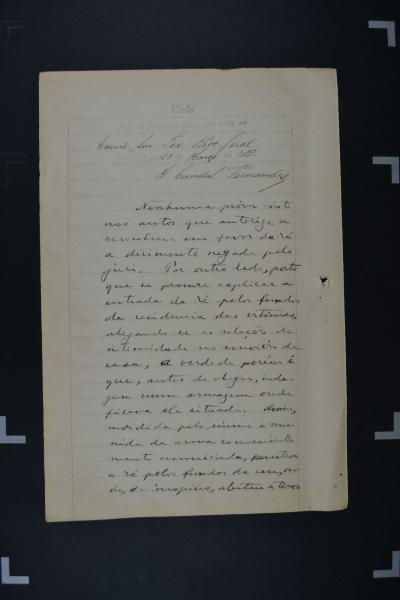 Visto
Exmo Snr Des Proc Geral
de Março de 19
Fernandes
Nenhuma prova existe
nos autos que autorize a
reconhecer em favor da ré
a dirimente negada pelo
jury. Por outro lado, posto
que se procure explicar a
entrada da ré pelos fundos
da residencia das victimas,
alegando-se as relações de
intimidade no convivio da
casa, a verdade porém é
que, antes de agir, inda-
gou num armazem onde
ficava ella situada. Assim,
mordida pelo ciume e mu-
nida da arma conveniente-
mente municiada, penetrou
a ré pelos fundos da casa, on-
de, de inopino, abateu a tiros